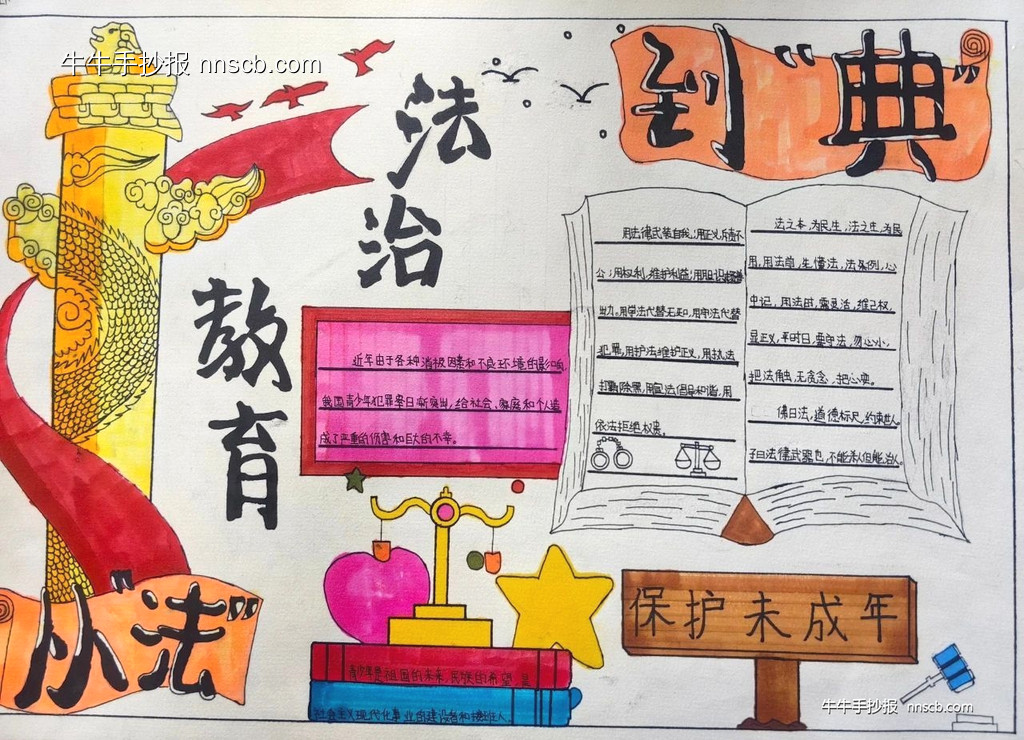 牛牛手抄报 nnscb.com
到“典”
法治
教育
用法律武装自我，用正义斥责不
公；用权利，维护利益；用胆识
出力。用学法代替无知，用守法代替
犯罪，用护法维护正义，用执法
打黑除黑，用宣法倡导和谐，用
依法拒绝权衰。
法之本，为民生，法之生，为民
用，用法前，先懂法，法条例，心
中记，用法时，需灵活，维己权，
显正义，平时日，要守法，勿心小，
把法触，无贪念，把心变。
佛曰法，道德标尺，约束世人
子曰法律武器也，不能杀人但能治人。
近年由于各种消极因素和不良环境的影响，
我国青少年犯罪案日渐突出，给社会、家庭和个人造
成了严重的伤害和巨大的不幸。
从“法”
保护未成年
青少年是祖国的未来，民族的希望，是
社会主义现代化事业的建设者和接班人。
牛牛手抄报 nnscb.com